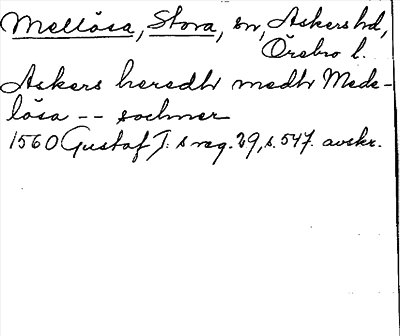 Mellösa, Stora, sn, Askers hd,
Örebro l.
Askers heredtt medtt Mede-
lösa -- sochner
1560 Gustaf I:s reg. 29, s. 547. avskr.